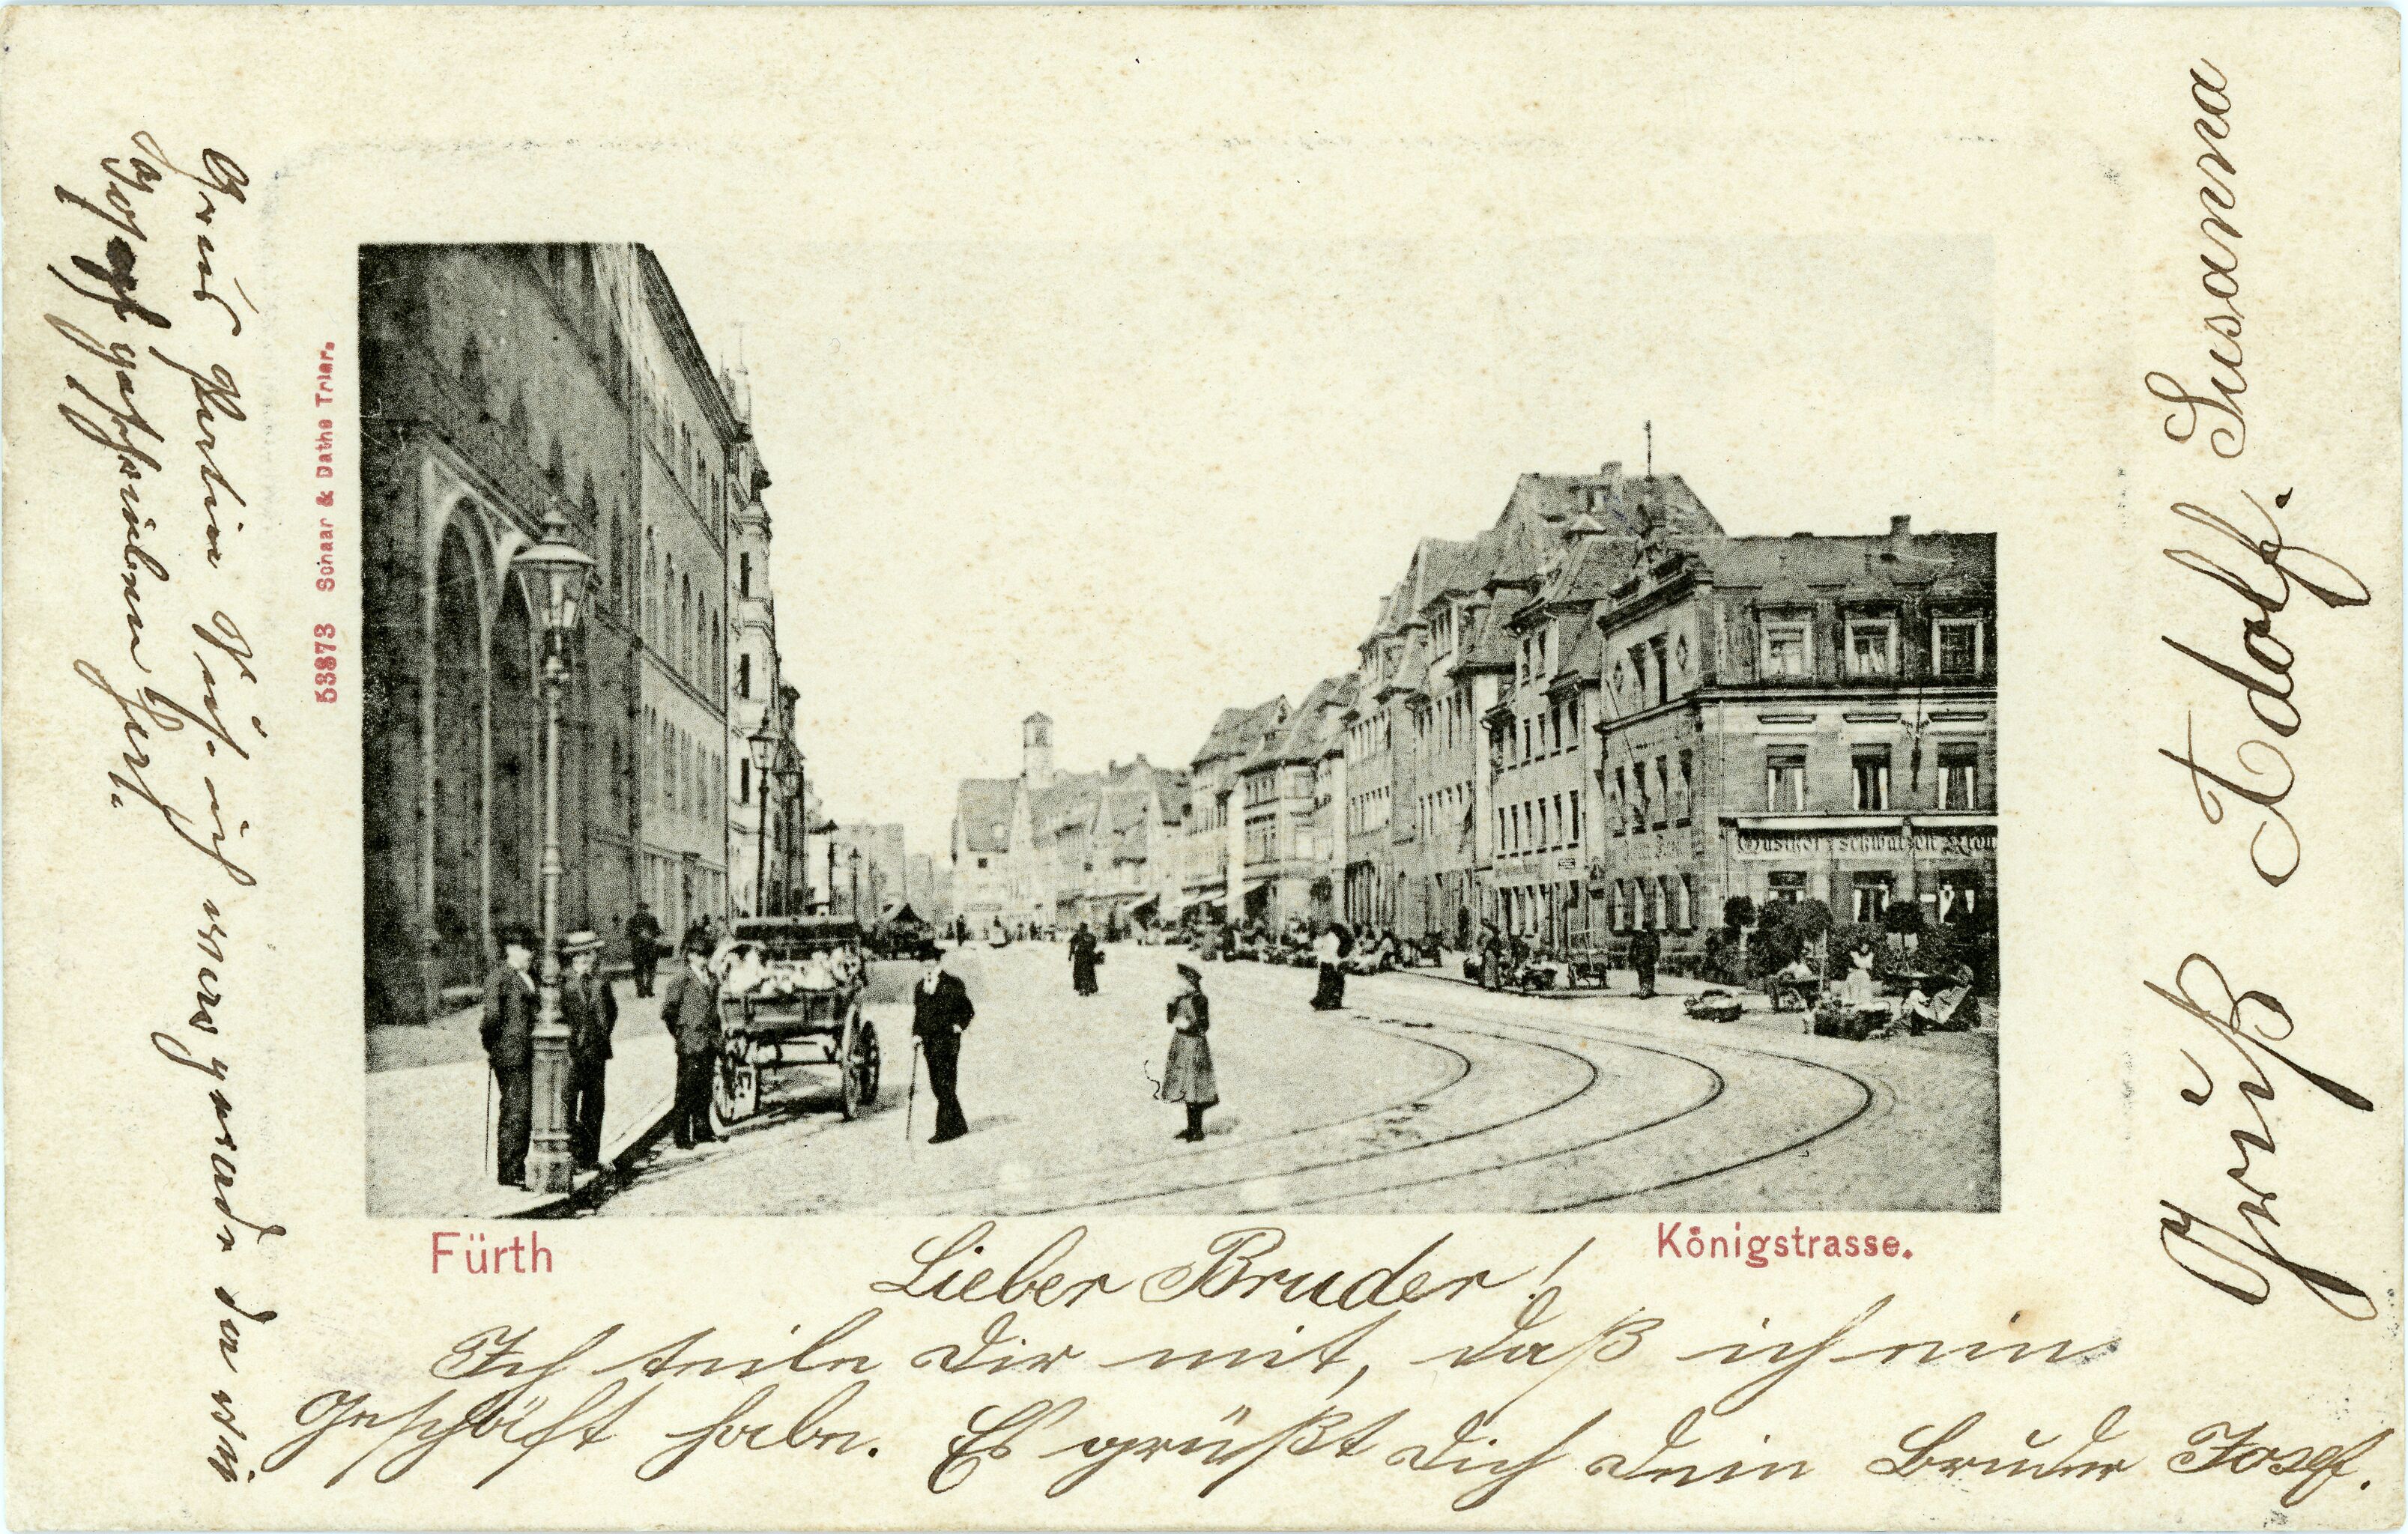 53873 Schaar & Dathe Trier.
Gasthof z schwarzen Kreu
Fürth
Königstrasse.
Lieber Bruder!
Ich teile Dir mit, daß ich ein
Geschäft habe. Es grüßt Dich Dein Bruder Josef.
Gruß Adolf. Susanna
Gruß ich war gerade da wie
Josef geschrieben hat.